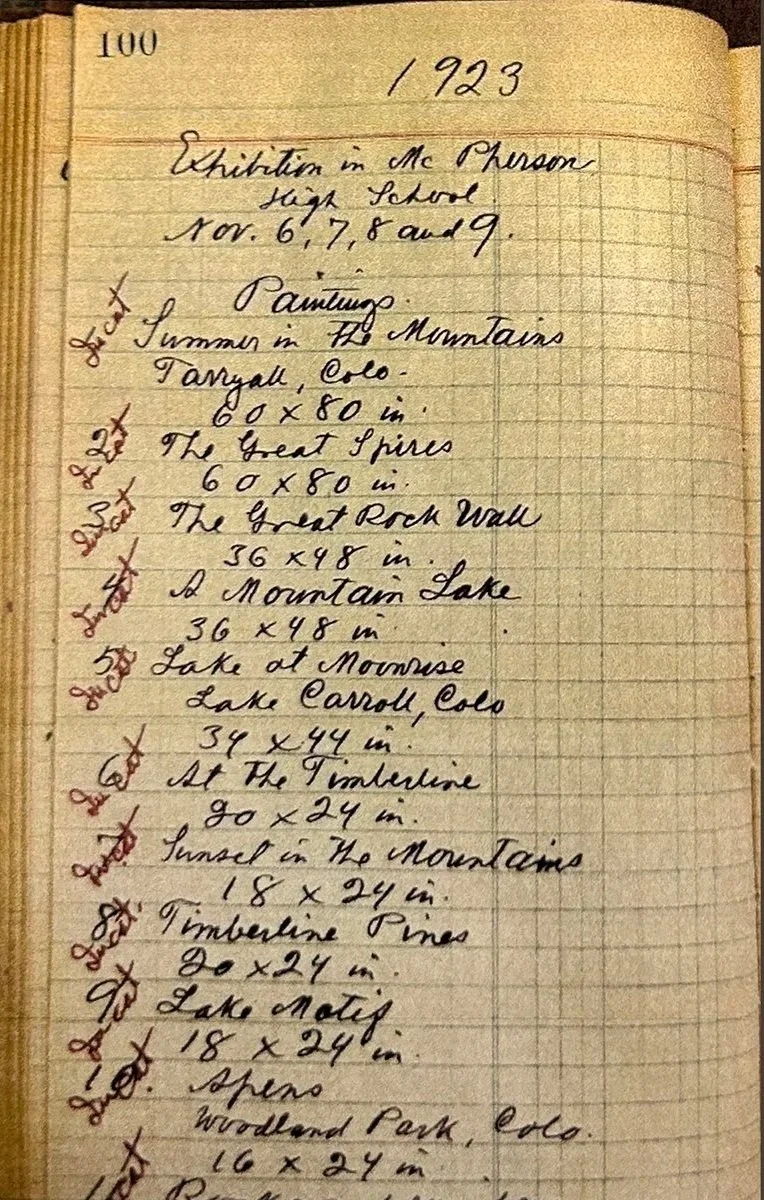 100
1923
Exhibition in Mc Pherson
High School.
Nov. 6, 7, 8 and 9.
Paintings.
In cat
Summer in the Mountains
Tarryall, Colo.
60 x 80 in.
In cat
2 The Great Spires
60 x 80 in.
In cat
3 The Great Rock Wall
36 x 48 in.
In cat
4 A Mountain Lake
36 x 48 in
In cat
5 Lake at Moonrise
Lake Carroll, Colo
34 x 44 in.
In cat
6 At the Timberline
20 x 24 in.
In cat
7. Sunset in the Mountains
18 x 24 in.
In cat.
8 Timberline Pines
20 x 24 in.
In cat
9 Lake Motif
18 x 24 in.
In cat
10. Aspens
Woodland Park, Colo.
16 x 24 in
cat